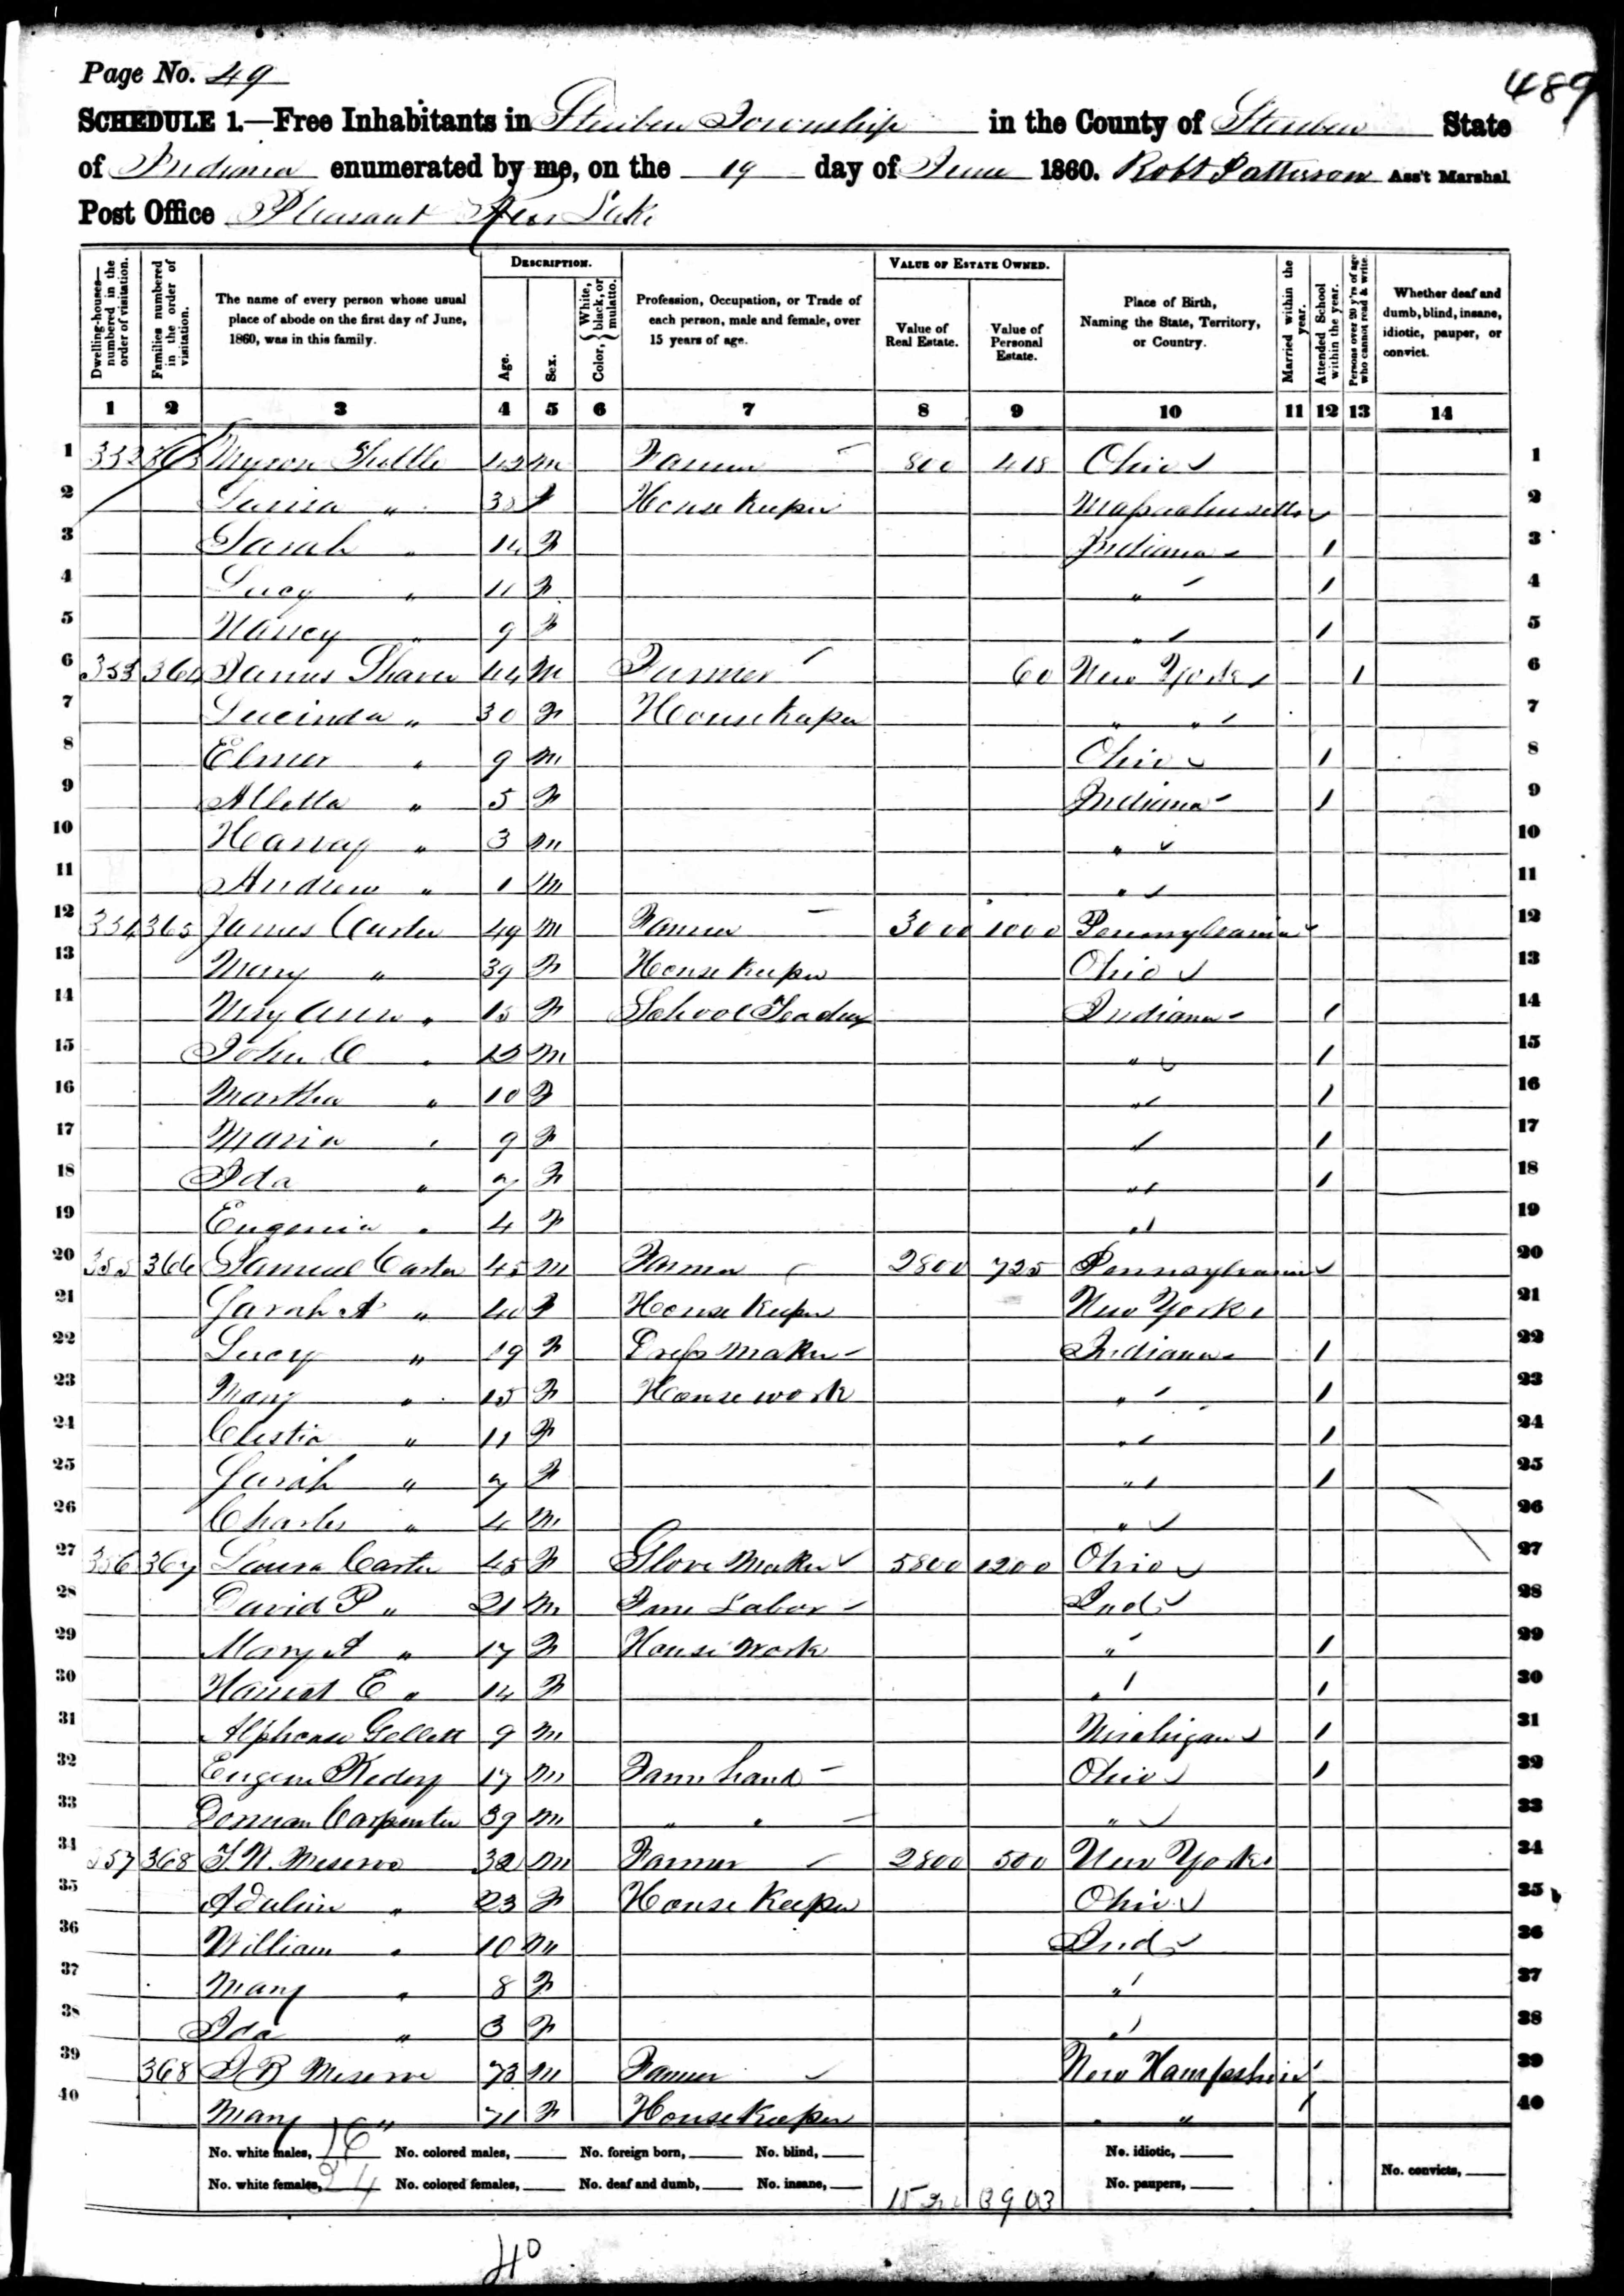 Page No. 49
489
SCHEDULE 1.—Free Inhabitants in Steuben Township in the County of Steuben State
of Indiana enumerated by me, on the 19 day of June 1860. Robt Patterson Ass't Marshal
Post Office Pleasant Lake
Dwelling-houses—numbered in the order of visitation. Families numbered in the order of visitation. The name of every person whose usual place of abode on the first day of June, 1860, was in this family. DESCRIPTION. Age. Sex. Color, {White, black, or mulatto. Profession, Occupation, or Trade of each person, male and female, over 15 years of age. VALUE OF ESTATE OWNED. Value of Real Estate. Value of Personal Estate. Place of Birth, Naming the State, Territory, or Country. Married within the year. Attended School within the year. Persons over 20 y'rs of age who cannot read & write. Whether deaf and dumb, blind, insane, idiotic, pauper, or convict.
1 2 3 4 5 6 7 8 9 10 11 12 13 14
1 352 363 Myron 42 m Farmer 800 418 Ohio 1
2 " f House Keeper Massachusetts 2
3 Sarah " 14 F Indiana 1 3
4 Lucy " 11 F " 1 4
5 Nancy " 9 F " 1 5
6 353 364 James Shaver 44 M Farmer 60 New York 1 6
7 Lucinda " 30 F House Keeper " " 7
8 Elmer " 9 m Ohio 1 8
9 " 5 F Indiana 1 9
10 " 3 m " 10
11 Andrew " 1 M " 11
12 354 365 James Carter 49 M Farmer 3000 1000 Pennsylvania 12
13 Mary " 39 F House Keeper Ohio 13
14 Mary Ann " F School Indiana 1 14
15 John C " 13 M " 1 15
16 Martha " 10 F " 1 16
17 Maria " 9 F " 1 17
18 Ida " 7 F " 1 18
19 Eugenia " 4 F " 19
20 355 366 Samuel Carter 45 M Farmer 2800 725 Pennsylvania 20
21 Sarah A " 40 F House Keeper New York 21
22 Lucy " 19 F Dress Maker Indiana 1 22
23 Mary " 15 F House work " 1 23
24 Celestia " 11 F " 1 24
25 Sarah " 7 F " 1 25
26 Charles " 4 M " 26
27 356 367 Louisa Carter 45 F Glove Maker 5800 1200 Ohio 27
28 David P " 21 M Farm Labor Ind 28
29 Mary A " 17 F House Work " 1 29
30 Harriet E " 14 F " 1 30
31 Alphonso Gellett 9 M Michigan 1 31
32 Eugene 17 M Farm hand Ohio 1 32
33 Carpenter 39 M " " " 33
34 357 368 Meserve 32 M Farmer 2800 500 New York 34
35 Adaline " 23 F House Keeper Ohio 35
36 William " 10 M Ind 36
37 Mary " 8 F " 37
38 Ida " 3 F " 38
39 368 Meserve 73 M Farmer New Hampshire 39
40 Mary " 71 F House Keeper " " 40
No. white males, 16 No. colored males, No. foreign born, No. blind, No. idiotic,
No. white females, 24 No. colored females, No. deaf and dumb, No. insane, No. paupers, No. convicts,
3903
40